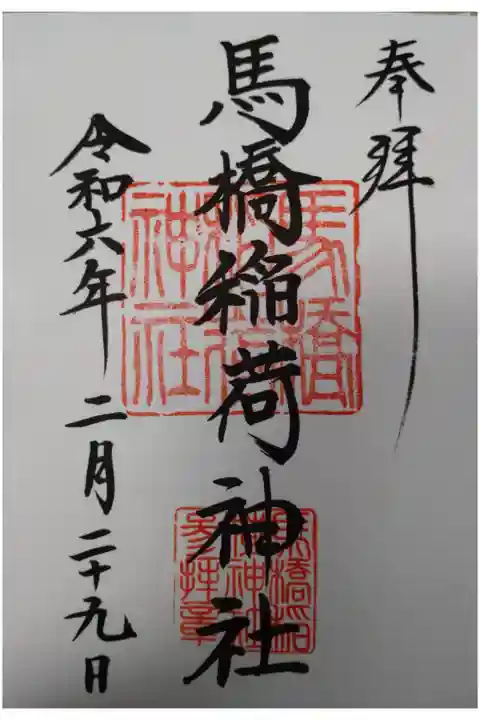 奉拝
馬橋稲荷神社
令和六年 二月二十九日
馬橋
稲荷
神社
馬橋稲
荷神社
参拝章